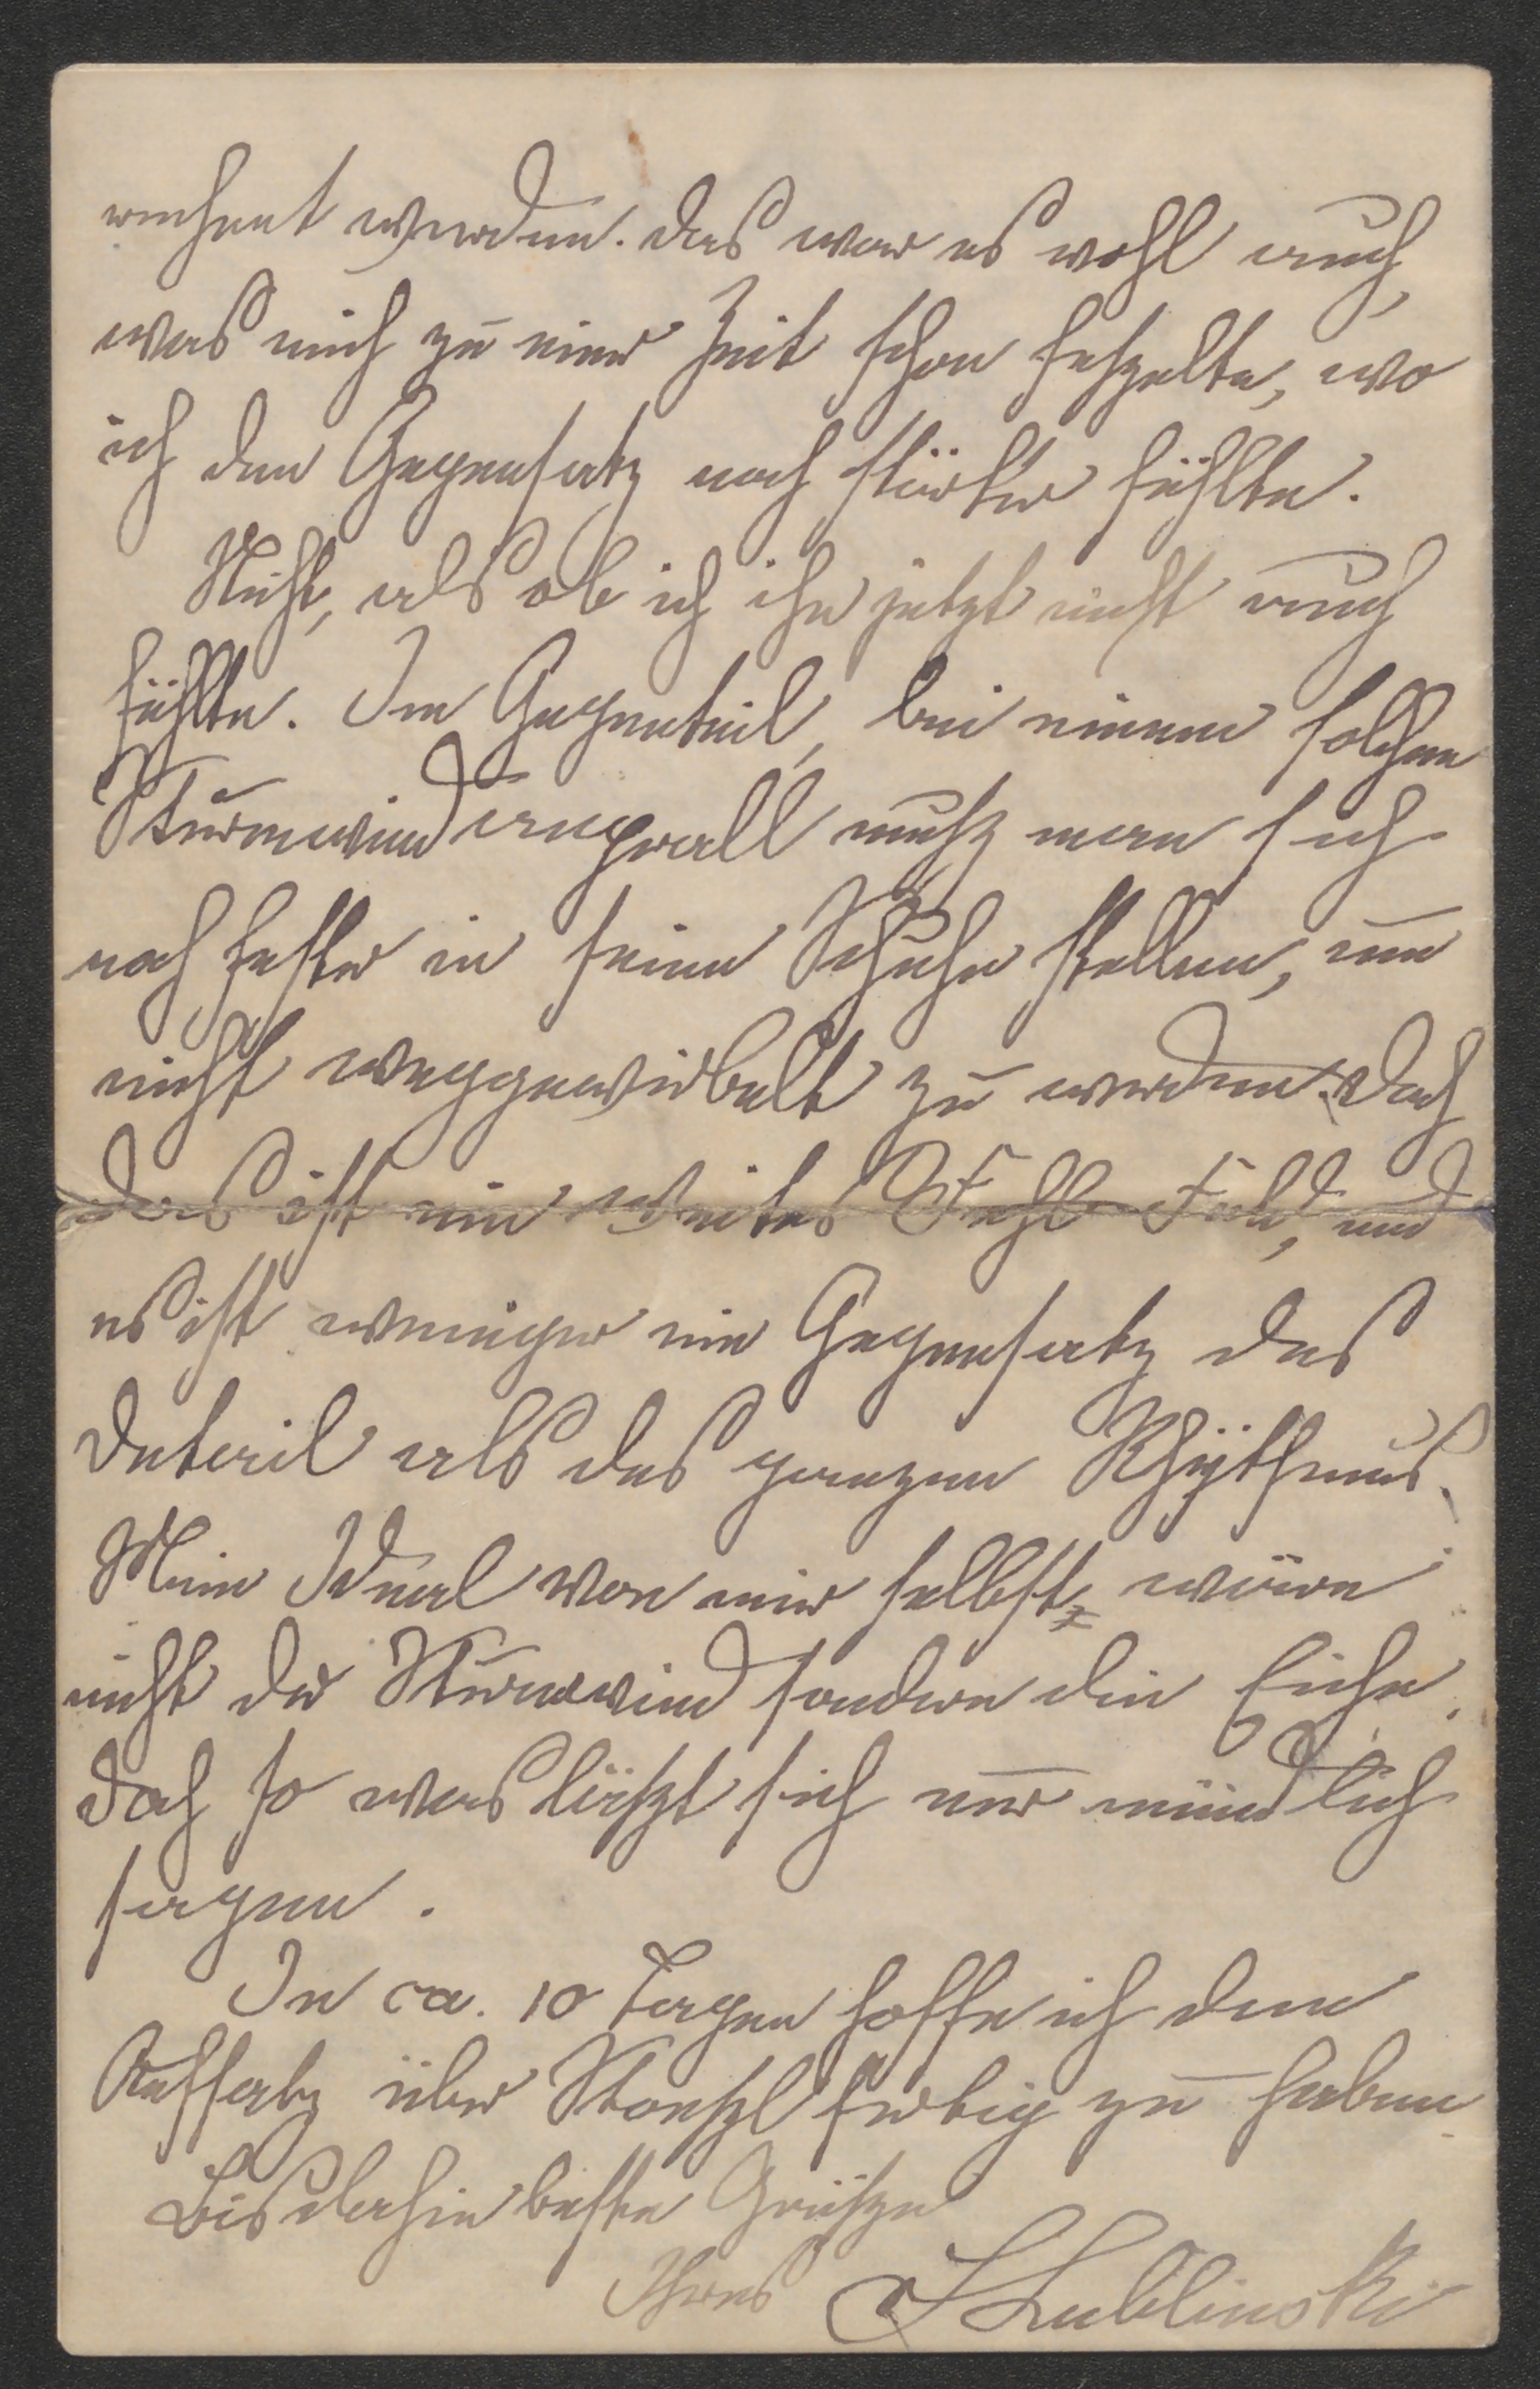 rechnet werden. Das war es wohl auch,
was mich zu einer Zeit schon feszelte, wo
ich den Gegensatz noch stärker fühlte.
Nicht, als ob ich ihn jetzt nicht auch
fühlte. Im Gegenteil, bei einem solchen
Sturmwindanprall musz man sich
noch fester in seine Schuhe stellen, um
nicht weggewirbelt zu werden. Doch
das ist ein weites Fehl Feld, und
es ist weniger ein Gegensatz des
Detail als des ganzen Rhythmus.
Mein Ideal von mir selbst, wäre
nicht der Sturmwind sondern die Eiche.
Doch so was läszt sich nur mündlich
sagen.
In ca. 10 Tagen hoffe ich den
Aufsatz über zu haben
Bis dahin beste Grüsze
Ihres SLublinski